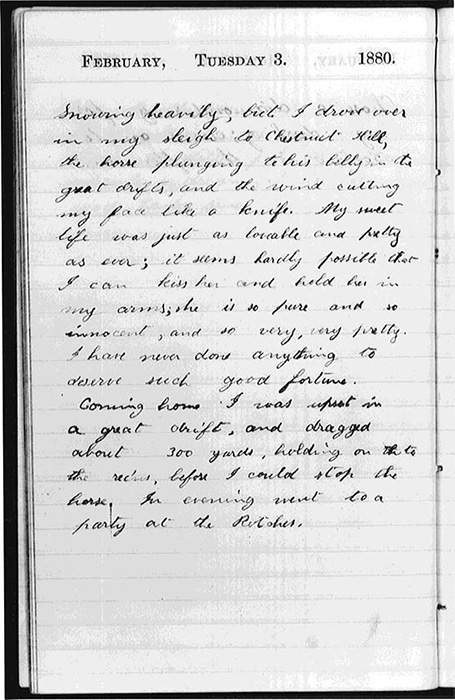 FEBRUARY, TUESDAY 3. 1880.
Snowing heavily, but I drove over
in my sleigh to Chestnut Hill,
the horse plunging to his belly in the
great drifts, and the wind cutting
my face like a knife. My sweet
life was just as lovable and pretty
as ever; it seems hardly possible that
I can kiss her and hold her in
my arms; she is so pure and so
innocent, and so very, very pretty.
I have never done anything to
deserve such good fortune.
Coming home I was upset in
a great drift, and dragged
about 300 yards, holding on to
the reins, before I could stop the
horse. In evening went to a
party at the Rotches.